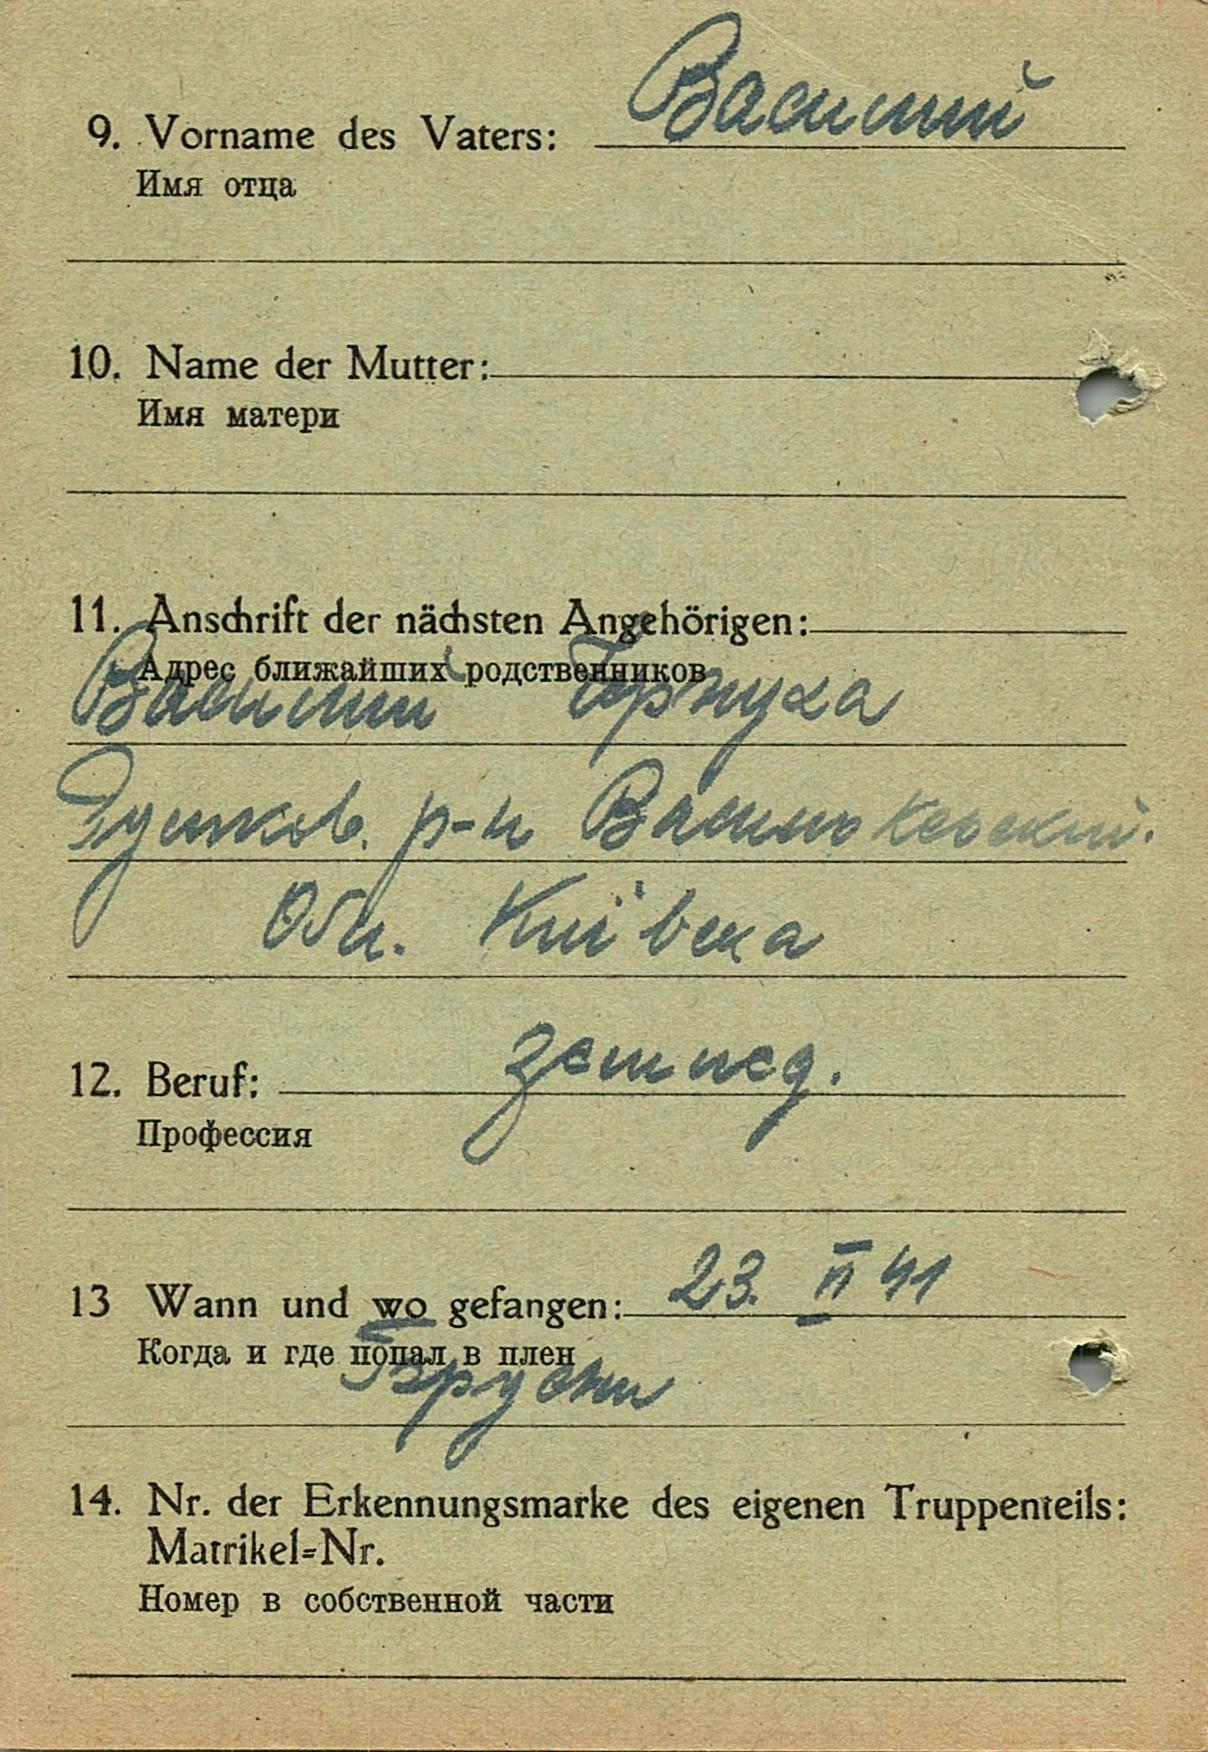 9. Vorname des Vaters: Василий
Имя отца
10. Name der Mutter:
Имя матери
11. Anschrift der nächsten Angehörigen:
Адрес ближайших родственников
Василий
р-н Васильковский.
Обл. Київска
12. Beruf: землед.
Профессия
13 Wann und wo gefangen: 23. VI 41
Когда и где попал в плен
14. Nr. der Erkennungsmarke des eigenen Truppenteils:
Matrikel=Nr.
Номер в собственной части